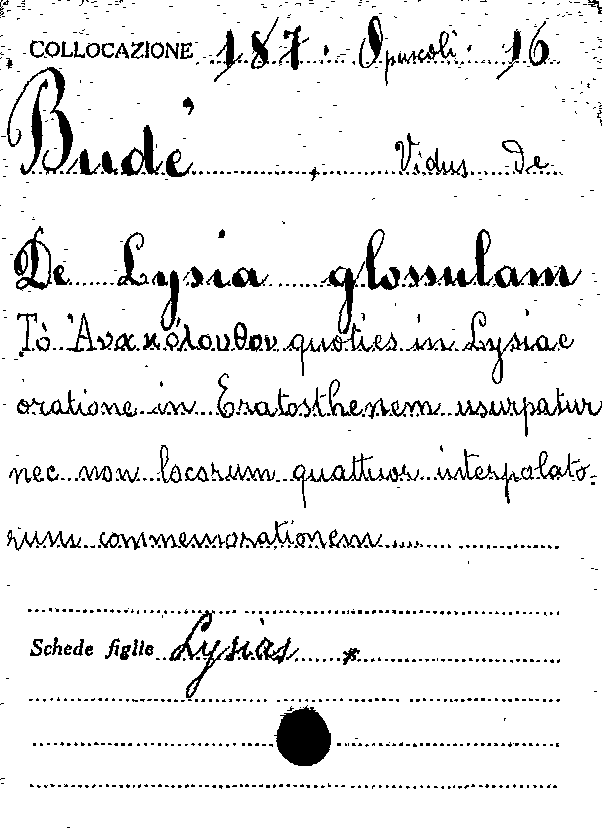 COLLOCAZIONE 187. Opuscoli. 16
Budé, Vidus de
De Lysia glossulam
Tò Ἀνακόλουθον quoties in Lysiae
oratione in Eratosthenem usurpatur
nec non locorum quattuor interpolato-
rum commemorationem ....
Schede figlie Lysias *